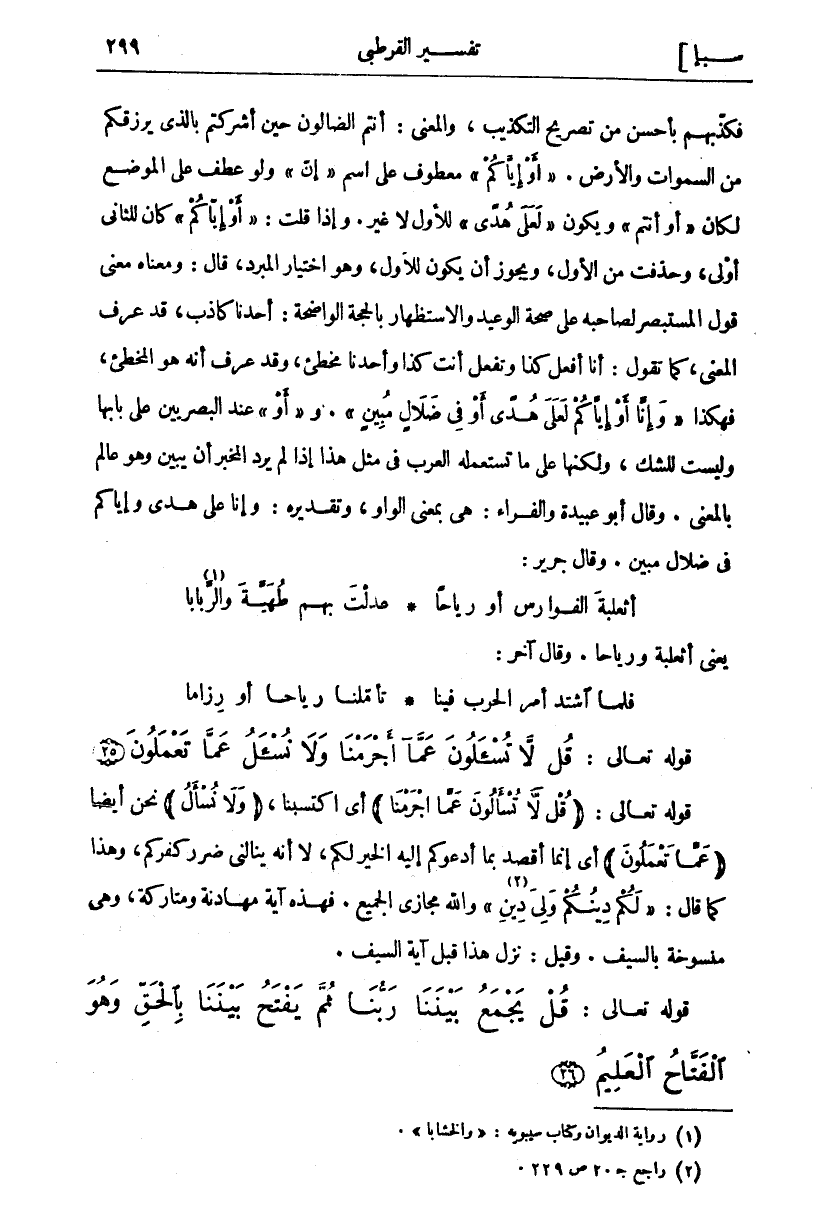 سبإ] تفسير القرطبى ٢٩٩
فكذّبهم بأحسن من تصريح التكذيب، والمعنى: أنتم الضالون حين أشركتم بالذى يرزقكم
من السموات والأرض. « أَوْ إِيَّاكُمْ » معطوف على اسم « إنّ » ولو عطف على الموضع
لكان « أو أنتم » ويكون « لَعَلَى هُدًى » للأول لا غير. وإذا قلت: « أَوْ إِيّاكُمْ » كان للثانى
أوْلى، وحذفت من الأول، ويجوز أن يكون للأول، وهو اختيار المبرد، قال: ومعناه معنى
قول المستبصر لصاحبه على صحة الوعيد والاستظهار بالحجة الواضحة: أحدنا كاذب، قد عرف
المعنى، كما تقول: أنا أفعل كذا وتفعل أنت كذا وأحدنا مخطئ، وقد عرف أنه هو المخطئ،
فهكذا « وَإِنَّا أَوْ إِيَّاكُمْ لَعَلَى هُدًى أَوْ فِى ضَلَالٍ مُبِينٍ ». و « أَوْ » عند البصريين على بابها
وليست للشك، ولكنها على ما تستعمله العرب فى مثل هذا إذا لم يرد المخبر أن يبين وهو عالم
بالمعنى. وقال أبو عبيدة والفراء: هى بمعنى الواو، وتقديره: وإنا على هدى وإياكم
فى ضلال مبين. وقال جرير:
أثعلبةَ الفوارس أو رياحًا * عدلْتَ بهم طُهَيَّةَ والرَّبابا (١)
يعنى أثعلبة ورياحا. وقال آخر:
فلما ٱشتد أمر الحرب فينا * تأمّلنا رياحا أو رِزاما
قوله تعالى: قُل لَّا تُسْـَٔلُونَ عَمَّآ أَجْرَمْنَا وَلَا نُسْـَٔلُ عَمَّا تَعْمَلُونَ ٢٥
قوله تعالى: ( قُلْ لَّا تُسْأَلُونَ عَمَّا اجْرَمْنَا ) أى اكتسبنا، ( وَلَا نُسْأَلُ ) نحن أيضا
( عَمَّا تَعْمَلُونَ ) أى إنما أقصد بما أدعوكم إليه الخير لكم، لا أنه ينالنى ضرر كفركم، وهذا
كما قال: « لَكُمْ دِينُكُمْ وَلِىَ دِينِ » (٢) والله مجازى الجميع. فهذه آية مهادنة ومتاركة، وهى
منسوخة بالسيف. وقيل: نزل هذا قبل آية السيف.
قوله تعالى: قُلْ يَجْمَعُ بَيْنَنَا رَبُّنَا ثُمَّ يَفْتَحُ بَيْنَنَا بِٱلْحَقِّ وَهُوَ
ٱلْفَتَّاحُ ٱلْعَلِيمُ ٢٦
(١) رواية الديوان وكتاب سيبويه: « والخشابا ».
(٢) راجع جـ ٢٠ ص ٢٢٩.